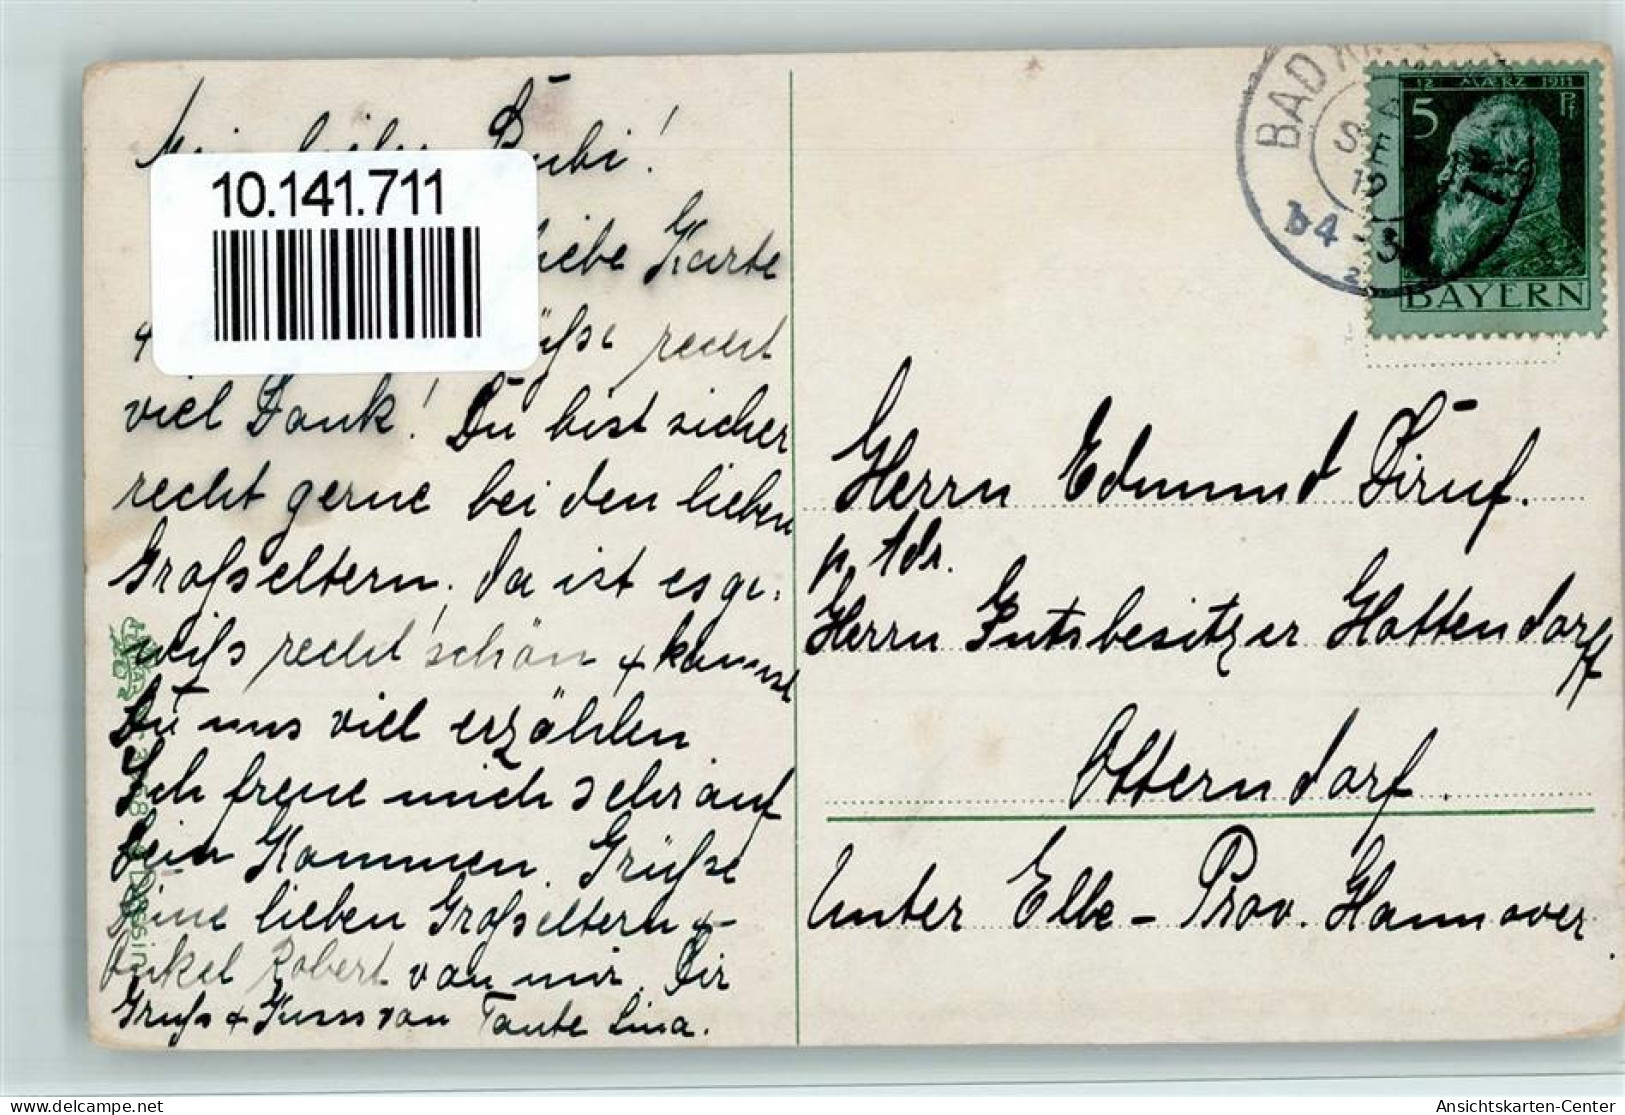 Mein lieber Bubi!
10.141.711
liebe Karte
+ recht
viel Dank! Du bist sicher
recht gerne bei den lieben
Großeltern, da ist es ge-
wiß recht schön + kannst
Du uns viel erzählen
Ich freue mich sehr auf
Dein Kommen. Grüße
Deine lieben Großeltern +
Onkel Robert von mir. Dir
Gruß + Kuss von Tante Lina.
BAD
SE
b4-5
2
12 MÆRZ 1911
5 Pf
BAYERN
Herrn Edmund Diruf.
p. Adr.
Herrn Gutsbesitzer Hottendorff
Otterndorf.
Unter Elbe - Prov. Hannover.
delcampe.net
Ansichtskarten-Center